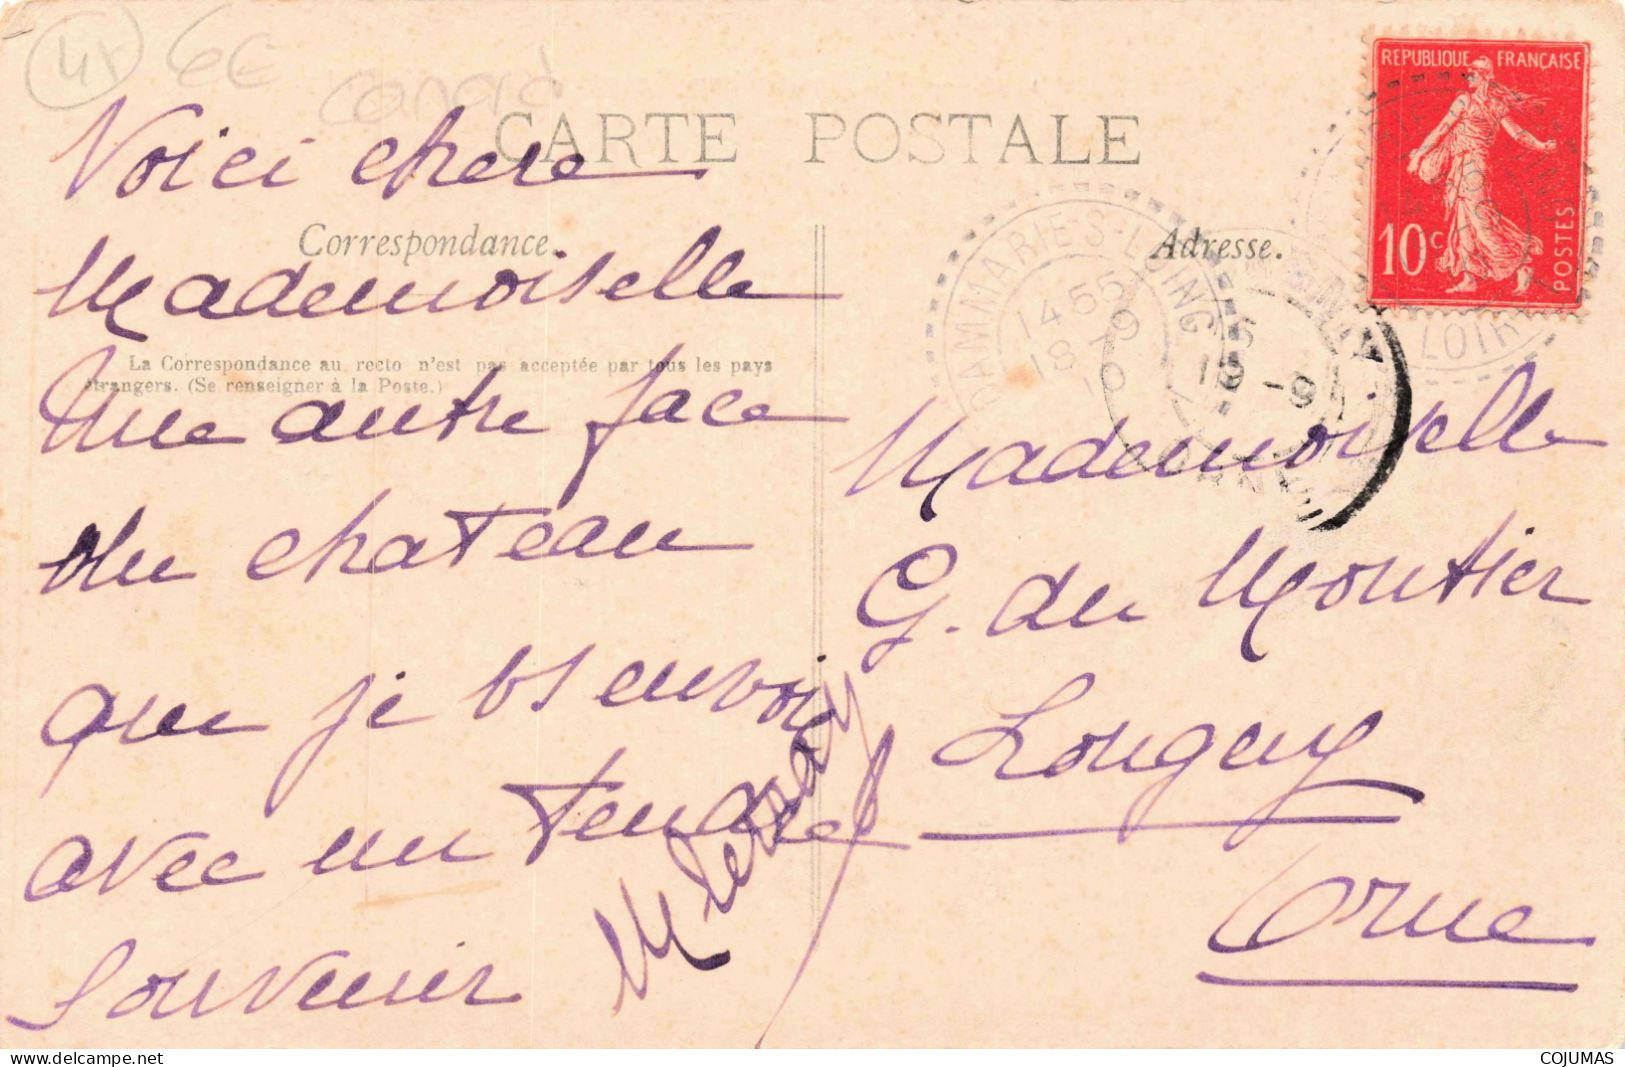 45 6€
CARTE POSTALE
Correspondance.
Adresse.
La Correspondance au recto n'est pas acceptée par tous les pays
étrangers. (Se renseigner à la Poste.)
Voici chere
Mademoiselle
Une autre face
du chateau
que je vs envoie
avec un tendre
Souvenir
REPUBLIQUE FRANÇAISE
10c
POSTES
DAMMARIE-S-LOING
14 55
18 -9
10
LOIR
19 -9
Mademoiselle
G. du Moutier
Longny
Orne
COJUMAS
www.delcampe.net